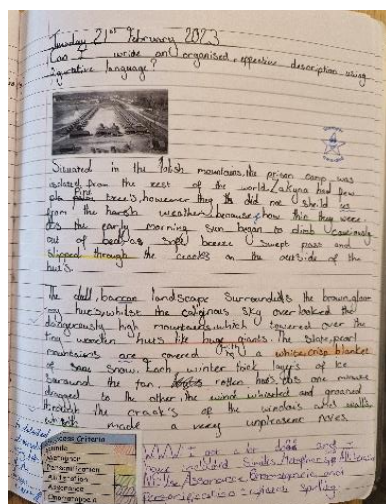 Tuesday 21st February 2023
Can I write an organised, effective description using
figurative language?
Situated in the Tatish mountains, the prison camp was
isolated from the rest of the world. Zakyna had few
Pine tree's, however they did not sheild us
from the harsh weather because of how thin they were.
As the early morning sun began to climb cautiously
out of bed, as soft breeze swept past and
slipped through the cracks on the outside of the
hut's.
The dull, barren landscape surrounds the brown, gloomy
huts, whilst the sky overlooked the
dangerously high mountains, which towered over the
tiny wooden huts like huge giants. The slate, pearl
mountains are covered with a white, crisp blanket
of snow. Each winter took layers of ice
around the rotten huts. As one mouse
dropped to the other, the wind whistled and groaned
through the crack's of the windows and walls,
which made a very unpleasent noise.
Success Criteria
Simile
Metaphor
Personification
Alliteration
Assonance
Onomatopoeia
WWW I got a lot done and
have included Similes, Metaphors, Alliteration
Assonance, Onomatopoeia and
Personification